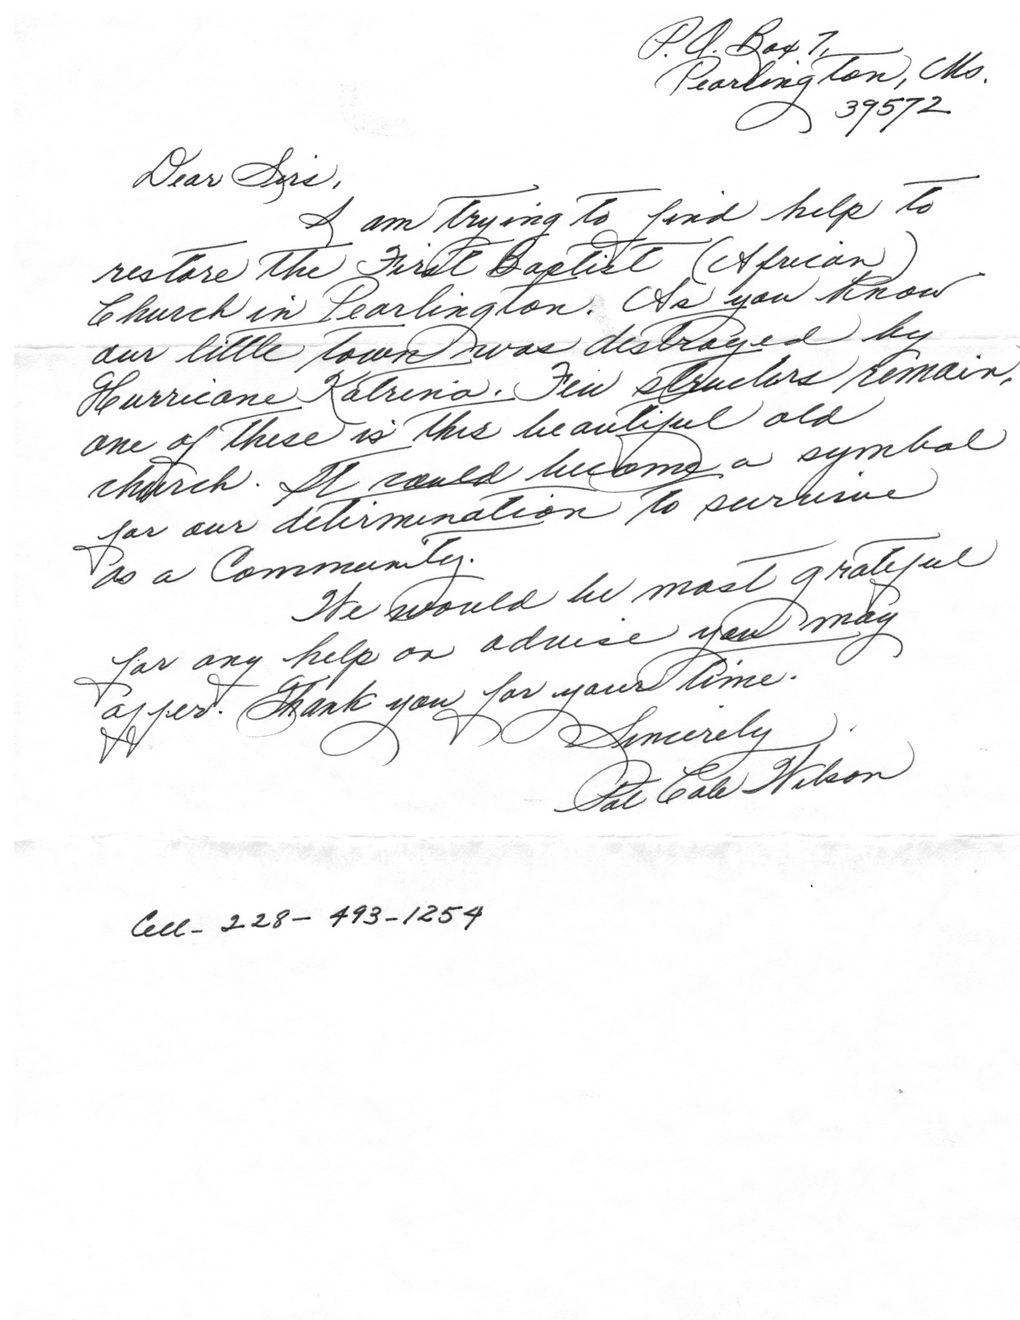 P.O. Box 7,
Pearlington, Ms.
39572
Dear Sirs,
I am trying to find help to
restore the First Baptist (African)
Church in Pearlington. As you know
our little town was destroyed by
Hurricane Katrina. Few structors remain,
one of these is this beautiful old
church. It could become a symbol
for our determination to survive
as a Community.
We would be most grateful
for any help or advise you may
offer. Thank you for your time.
Sincerely,
Pat Cole Wilson
Cell - 228 - 493-1254